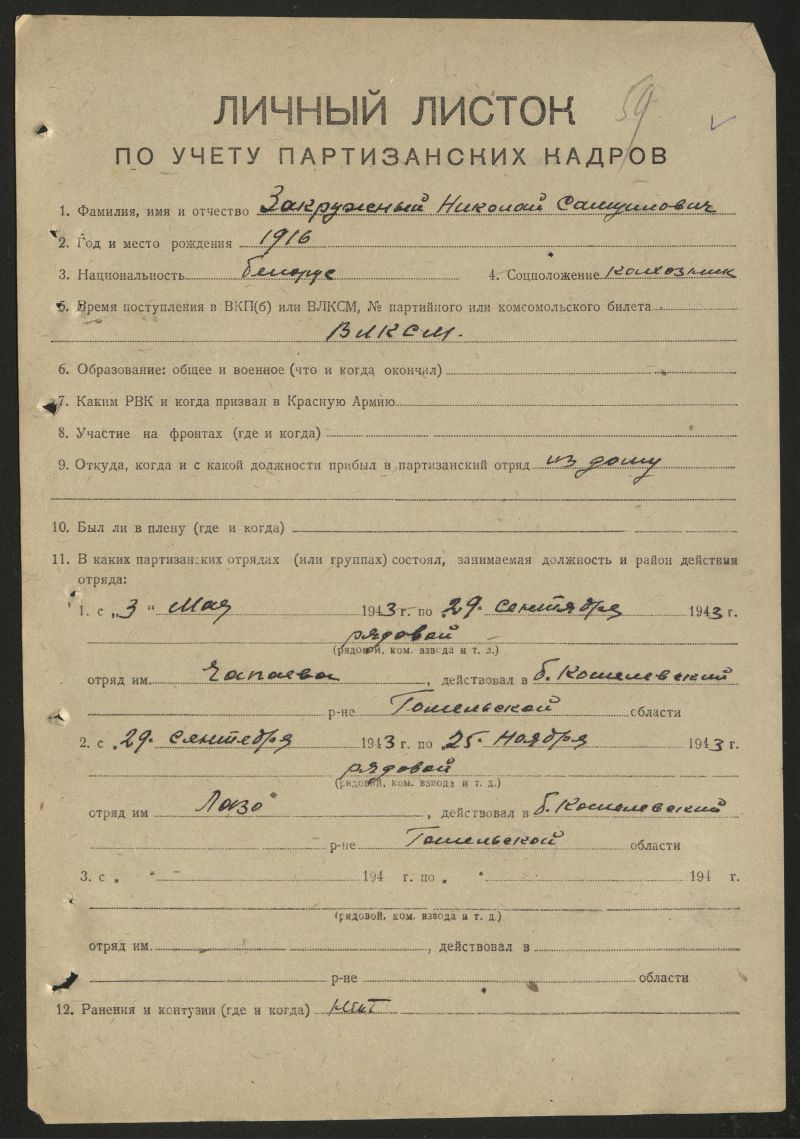 59
ЛИЧНЫЙ ЛИСТОК
ПО УЧЕТУ ПАРТИЗАНСКИХ КАДРОВ
1. Фамилия, имя и отчество Закружный Николай Самуилович
2. Год и место рождения 1916
3. Национальность белорус 4. Соцположение колхозник
5. Время поступления в ВКП(б) или ВЛКСМ, № партийного или комсомольского билета
ВЛКСМ.
6. Образование: общее и военное (что и когда окончил)
7. Каким РВК и когда призван в Красную Армию
8. Участие на фронтах (где и когда)
9. Откуда, когда и с какой должности прибыл в партизанский отряд из дому
10. Был ли в плену (где и когда)
11. В каких партизанских отрядах (или группах) состоял, занимаемая должность и район действия
отряда:
1. с „3" Мая 1943 г. по „29. сентября 1943 г.
рядовой
(рядовой, ком. взвода и т. д.)
отряд им. Чапаева, действовал в б. Кошелевский
р-не Гомельской области
2. с „29. сентября 1943 г. по „25. ноября 1943 г.
рядовой
(рядовой, ком. взвода и т. д.)
отряд им Лазо, действовал в б. Кошелевский
р-не Гомельской области
3. с „ " 194 г. по „ " 194 г.
(рядовой, ком. взвода и т. д.)
отряд им. , действовал в
р-не области
12. Ранения и контузии (где и когда) нет